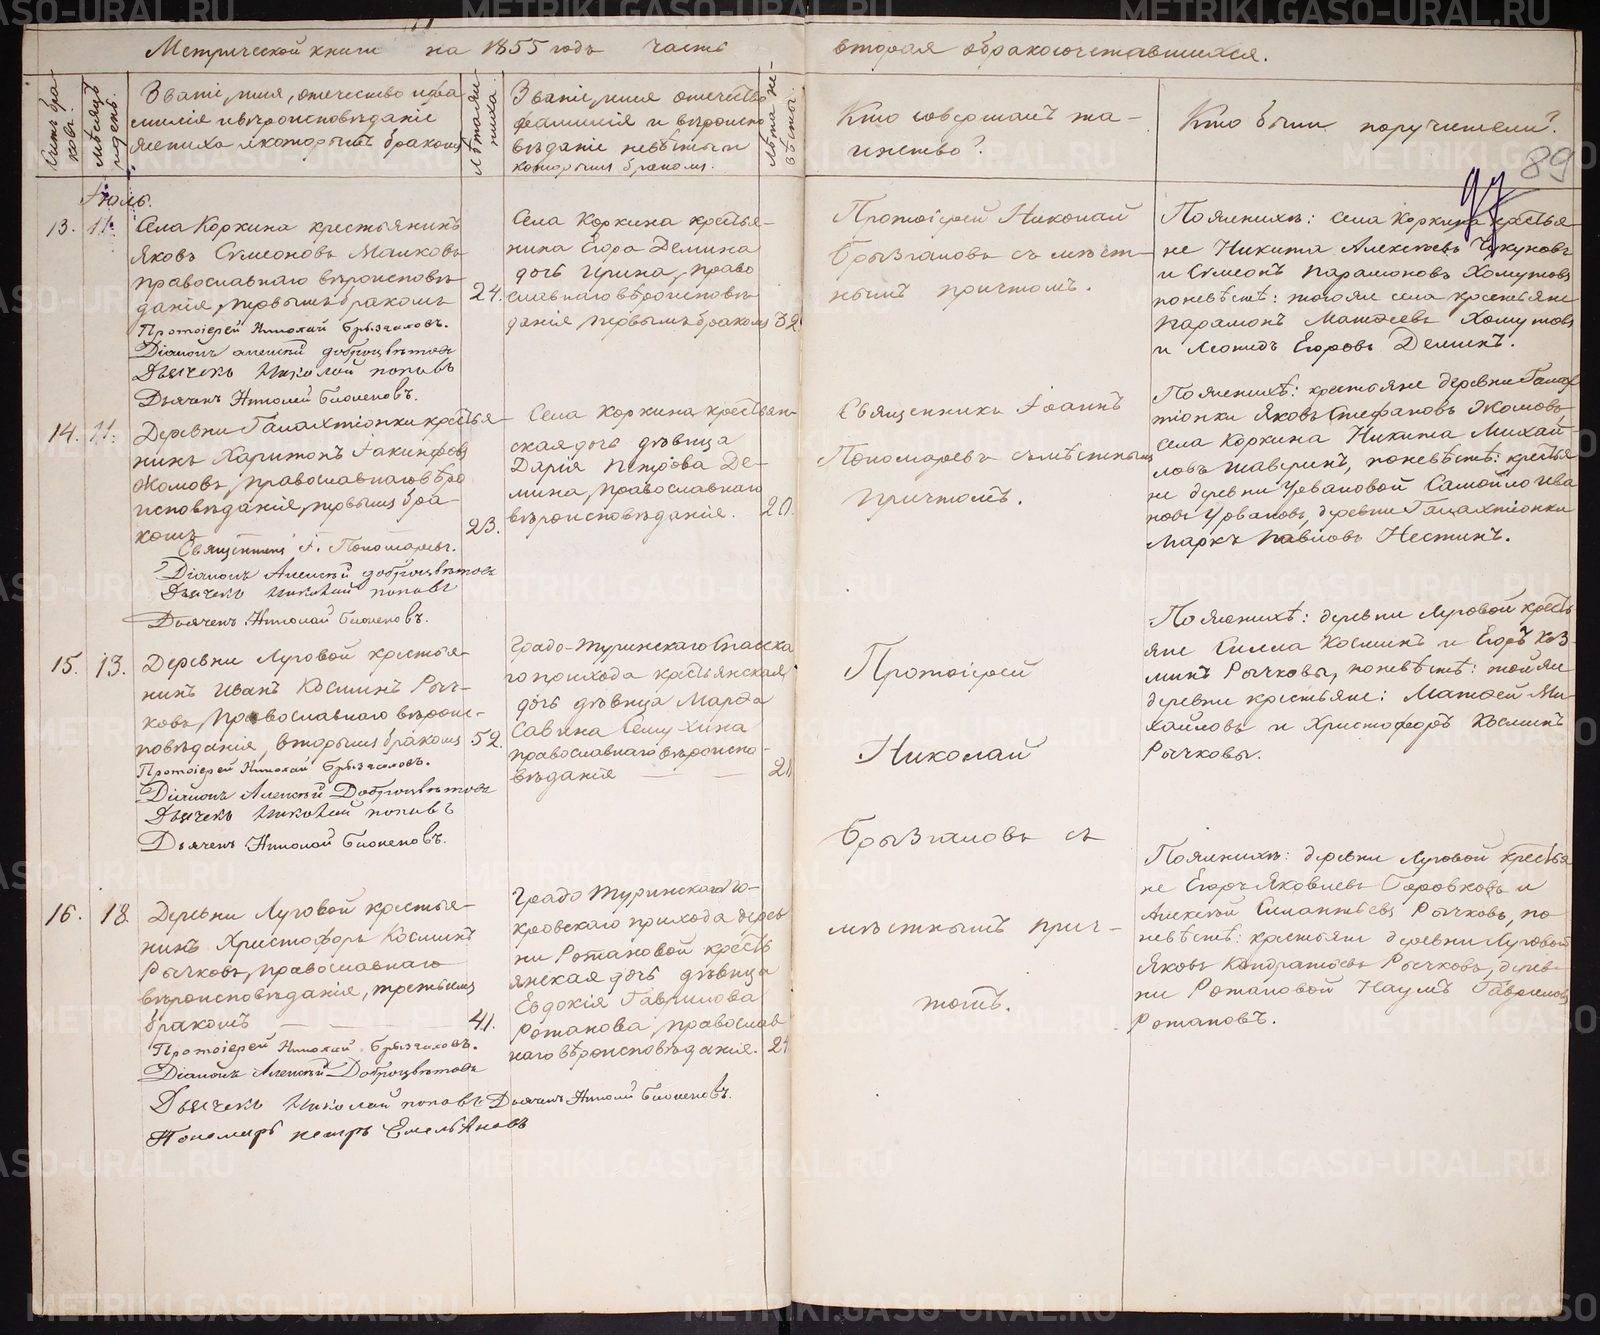 Метрической книги на 1855 годъ часть вторая о бракосочетавшихся.
Счетъ бра-
ковъ.
Мѣсяцъ
и день.
Званіе, имя, отечество и фа-
милія и вѣроисповѣданіе
жениха и которымъ бракомъ
Лѣта же-
ниха.
Званіе, имя отечество
фамилія и вѣроиспо
вѣданіе невѣсты и
которымъ бракомъ.
Лѣта не-
вѣсты.
Кто совершалъ та-
инство?
Кто были поручители?
89
Іюль.
13. 11.
Села Коркина крестьянинъ
Яковъ Сѵмеоновъ Малковъ
православнаго вѣроисповѣ
данія, первымъ бракомъ 24.
Протоіерей Николай Брызгаловъ.
Діаконъ Алексѣй Доброцвѣтовъ
Дьячекъ Николай Поповъ
Дьячекъ Николай
Села Коркина кресть-
янина Егора Демина
дочь Ирина, право
славнаго вѣроисповѣ
данія первымъ бракомъ 32
Протоіерей Николай
Брызгаловъ съ мѣст-
нымъ причтомъ.
По женихѣ: села Коркина крестья
не Никита Алексѣевъ
и Сѵмеонъ Парамоновъ Хомутовъ
по невѣстѣ: тогоже села крестьяне
Парамонъ Матвеевъ Хомутовъ
и Леонидъ Егоровъ Деминъ.
14. 11.
Деревни крестья
нинъ Харитонъ Іакинфовъ
Жомовъ, православнаго вѣро
исповѣданія, первымъ бра-
комъ 23.
Священникъ І. Пономаревъ.
Діаконъ Алексѣй Доброцвѣтовъ
Дьячекъ Николай Поповъ
Дьячекъ Николай
Села Коркина крестьян-
ская дочь дѣвица
Дарія Петрова Де-
мина, православнаго
вѣроисповѣданія. 20.
Священникъ Іоаннъ
Пономаревъ съ мѣстнымъ
причтомъ.
По женихѣ: крестьяне деревни
Яковъ Стефановъ Жомовъ
села Коркина Никита Михай-
ловъ Шавринъ, по невѣстѣ: крестья
не деревни Урвановой Самойло Ива
новъ Урвановъ, деревни
Маркъ Павловъ Нестинъ.
15. 13.
Деревни Луговой крестья-
нинъ Иванъ Косминъ Рыч-
ковъ, православнаго вѣроис-
повѣданія, вторымъ бракомъ 52.
Протоіерей Николай Брызгаловъ.
Діаконъ Алексѣй Доброцвѣтовъ
Дьячекъ Николай Поповъ
Дьячекъ Николай
Градо-Туринскаго Спасска
го прихода крестьянская
дочь дѣвица Марѳа
Савина
православнаго вѣроиспо-
вѣданія 21
Протоіерей
Николай
Брызгаловъ съ
мѣстнымъ прич-
томъ.
По женихѣ: деревни Луговой кресть
яне Силла Косминъ и Егоръ Коз-
минъ Рычковы, по невѣстѣ: тойже
деревни крестьяне: Матѳей Ми-
хайловъ и Христофоръ Косминъ
Рычковы.
16. 18
Деревни Луговой крестья-
нинъ Христофоръ Косминъ
Рычковъ, православнаго
вѣроисповѣданія, третьимъ
бракомъ 41.
Протоіерей Николай Брызгаловъ.
Діаконъ Алексѣй Доброцвѣтовъ
Дьячекъ Николай Поповъ Дьячекъ Николай
Пономарь Петръ Емельяновъ
Градо Туринскаго По-
кровскаго прихода дерев
ни Ротановой кресть
янская дочь дѣвица
Евдокія Гаврилова
Ротанова, православ
наго вѣроисповѣданія. 24
По женихѣ: деревни Луговой крестья
не Егоръ Яковлевъ Боровковъ и
Алексѣй Рычковъ, по
невѣстѣ: крестьяне деревни Луговой
Яковъ Кондратьевъ Рычковъ, дерев-
ни Ротановой Наумъ Гавриловъ
Ротановъ.
METRIKI.GASO-URAL.RU